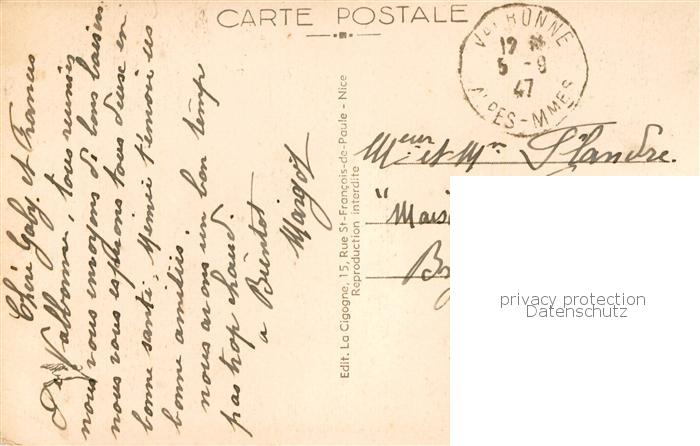 CARTE POSTALE
VALBONNE
12 H
5 - 9
47
ALPES-MMES
Chère Gaby et Francis
De Valbonne, tous reunies
nous vous envoyons di bons baisers
nous vous espérons tous deux en
bonne santé, Mémé t'envoie ses
bonne amitiés.
nous avons un bon temp
pas trop chaud.
a Bientot
Margot
Edit. La Cigogne, 15, Rue St-François-de-Paule - Nice
Reproduction interdite
Meur et Mme Flandre.
"Mais
privacy protection
Datenschutz